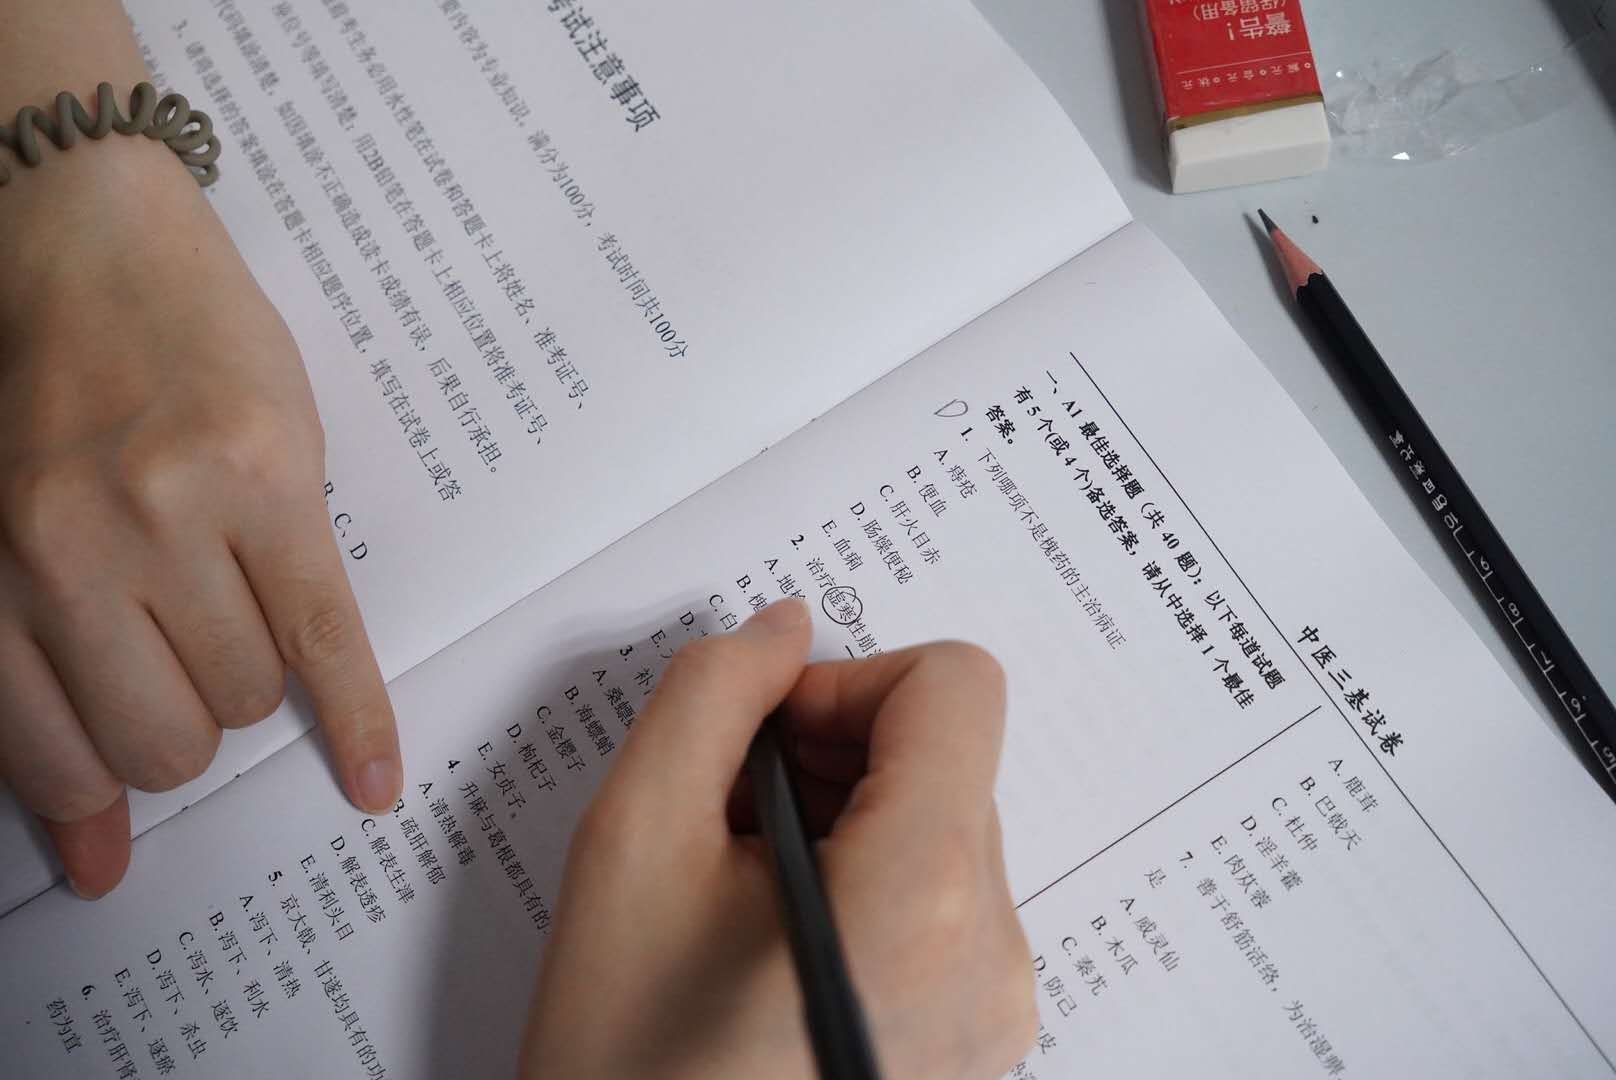 考试注意事项
要内容为专业知识，满分为100分，考试时间共100分
考生务必用水性笔在试卷和答题卡上将姓名、准考证号、
座位号等填写清楚；用2B铅笔在答题卡上相应位置将准考证号、
代码填涂清楚，如因填涂不正确造成读卡成绩有误，后果自行承担。
3. 请将选择的答案填涂在答题卡相应题序位置，填写在试卷上或答
B、C、D
中医三基试卷
一、A1 最佳选择题（共 40 题）；以下每道试题
有 5 个(或 4 个)备选答案，请从中选择 1 个最佳
答案。
D
1. 下列哪项不是槐药的主治病证
A. 痔疮
B. 便血
C. 肝火目赤
D. 肠燥便秘
E. 血痢
2. 治疗虚寒性崩
A. 地
B. 槐
C. 白
D.
E.
3. 补
A. 桑螵
B. 海螵蛸
C. 金樱子
D. 枸杞子
E. 女贞子。
4. 升麻与葛根都具有的
A. 清热解毒
B. 疏肝解郁
C. 解表生津
D. 解表透疹
E. 清利头目
5. 京大戟、甘遂均具有的功
A. 泻下、清热
B. 泻下、利水
C. 泻水、逐饮
D. 泻下、杀虫
E. 泻下、逐瘀
6. 治疗肝肾
药为宜
A. 鹿茸
B. 巴戟天
C. 杜仲
D. 淫羊藿
E. 肉苁蓉
7. 善于舒筋活络，为治湿痹
是
A. 威灵仙
B. 木瓜
C. 秦艽
D. 防己
皮
警告！
(保留备用)